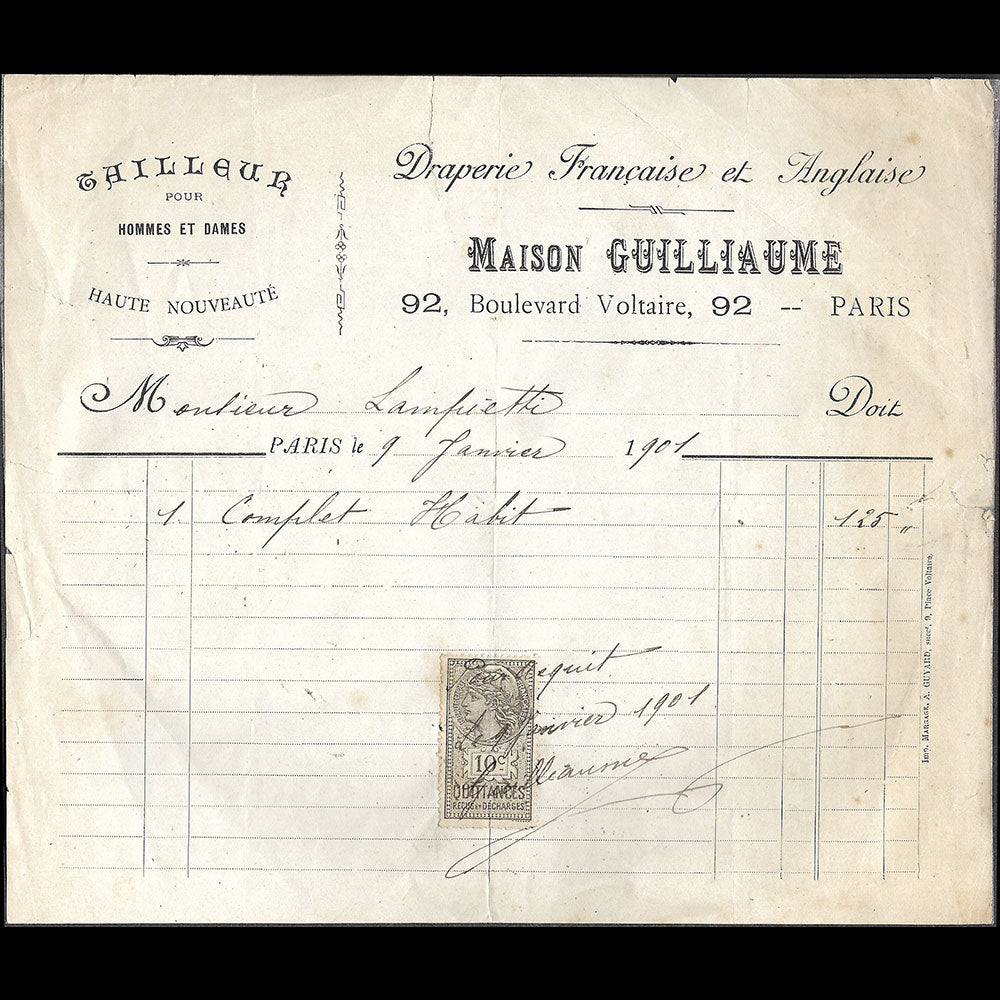 TAILLEUR
POUR
HOMMES ET DAMES
HAUTE NOUVEAUTÉ
Draperie Française et Anglaise
MAISON GUILLIAUME
92, Boulevard Voltaire, 92 -- PARIS
Monsieur Lampietti Doit
PARIS le 9 Janvier 1901
1 Complet Habit 125 "
Pour acquit
Janvier 1901
Guilliaume
10c
QUITTANCES
REÇUS ET DÉCHARGES
Imp. MARSAGE, A. GUYARD, succr, 9, Place Voltaire.